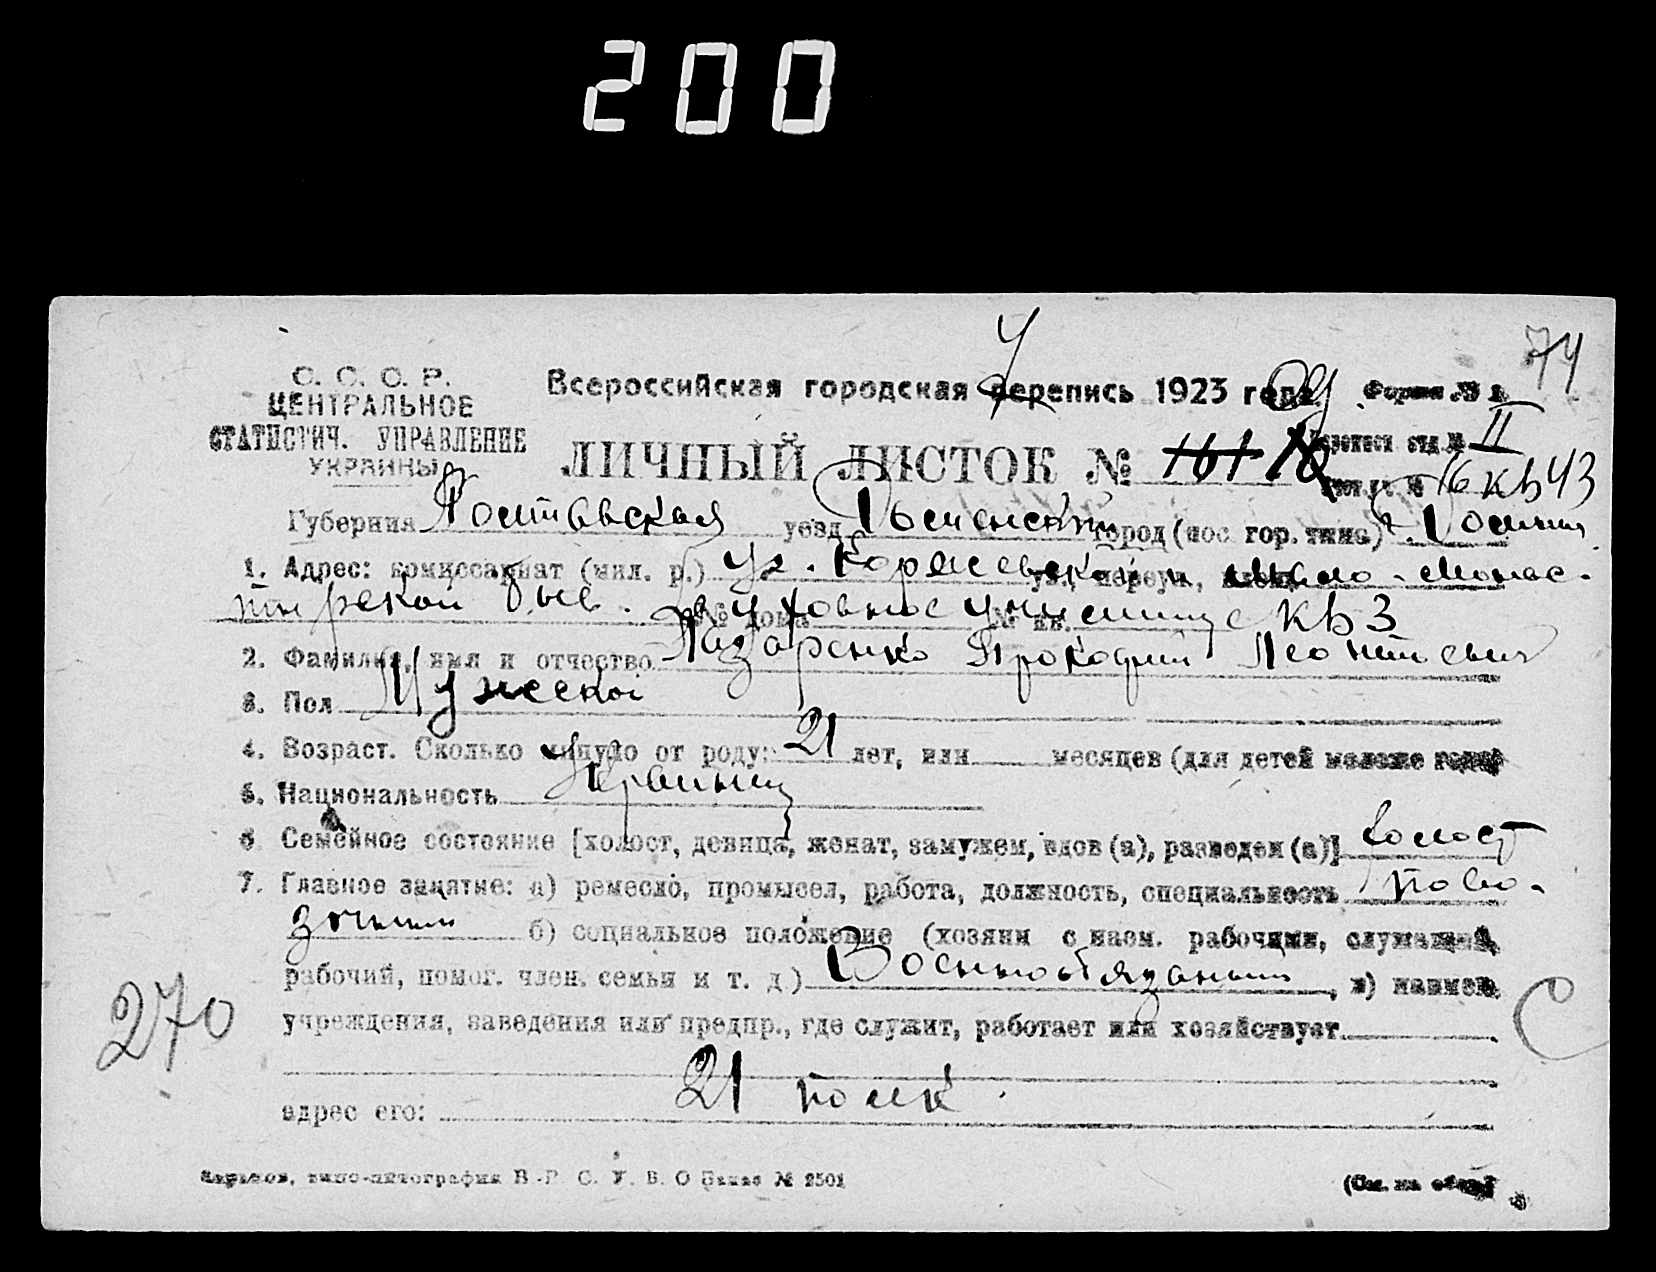 200
74
С. С. С. Р.
ЦЕНТРАЛЬНОЕ
СТАТИСТИЧ. УПРАВЛЕНИЕ
УКРАИНЫ
Всероссийская городская перепись 1923 года. Форма № 1
ЛИЧНЫЙ ЛИСТОК № 161 II
16 кв 43
Губерния Полтавская уезд Роменский город (пос. гор. типа) г. Ромны
1. Адрес: комиссариат (мил. р.) уг. Коржевской и Мало-Монас-
тырской быв. Духовное училище кв 3
2. Фамилия, имя и отчество Лазаренко Прокофий Леонтьевич
3. Пол Мужской
4. Возраст. Сколько минуло от роду: 21 лет, или месяцев (для детей моложе года)
5. Национальность Украинец
6. Семейное состояние [холост, девица, женат, замужем, вдов (а), разведен (а)] Холост
7. Главное занятие: а) ремесло, промысел, работа, должность, специальность Пово-
зочный б) социальное положение (хозяин с наем. рабочими, служащий,
рабочий, помог. член. семьи и т. д.) Военнообязанный, в) наимен.
учреждения, заведения или предпр., где служит, работает или хозяйствует
270
С
21 полк.
адрес его:
Харьков, типо-литография В.-Р. С. У. В. О Заказ № 2501
(См. на обор.)